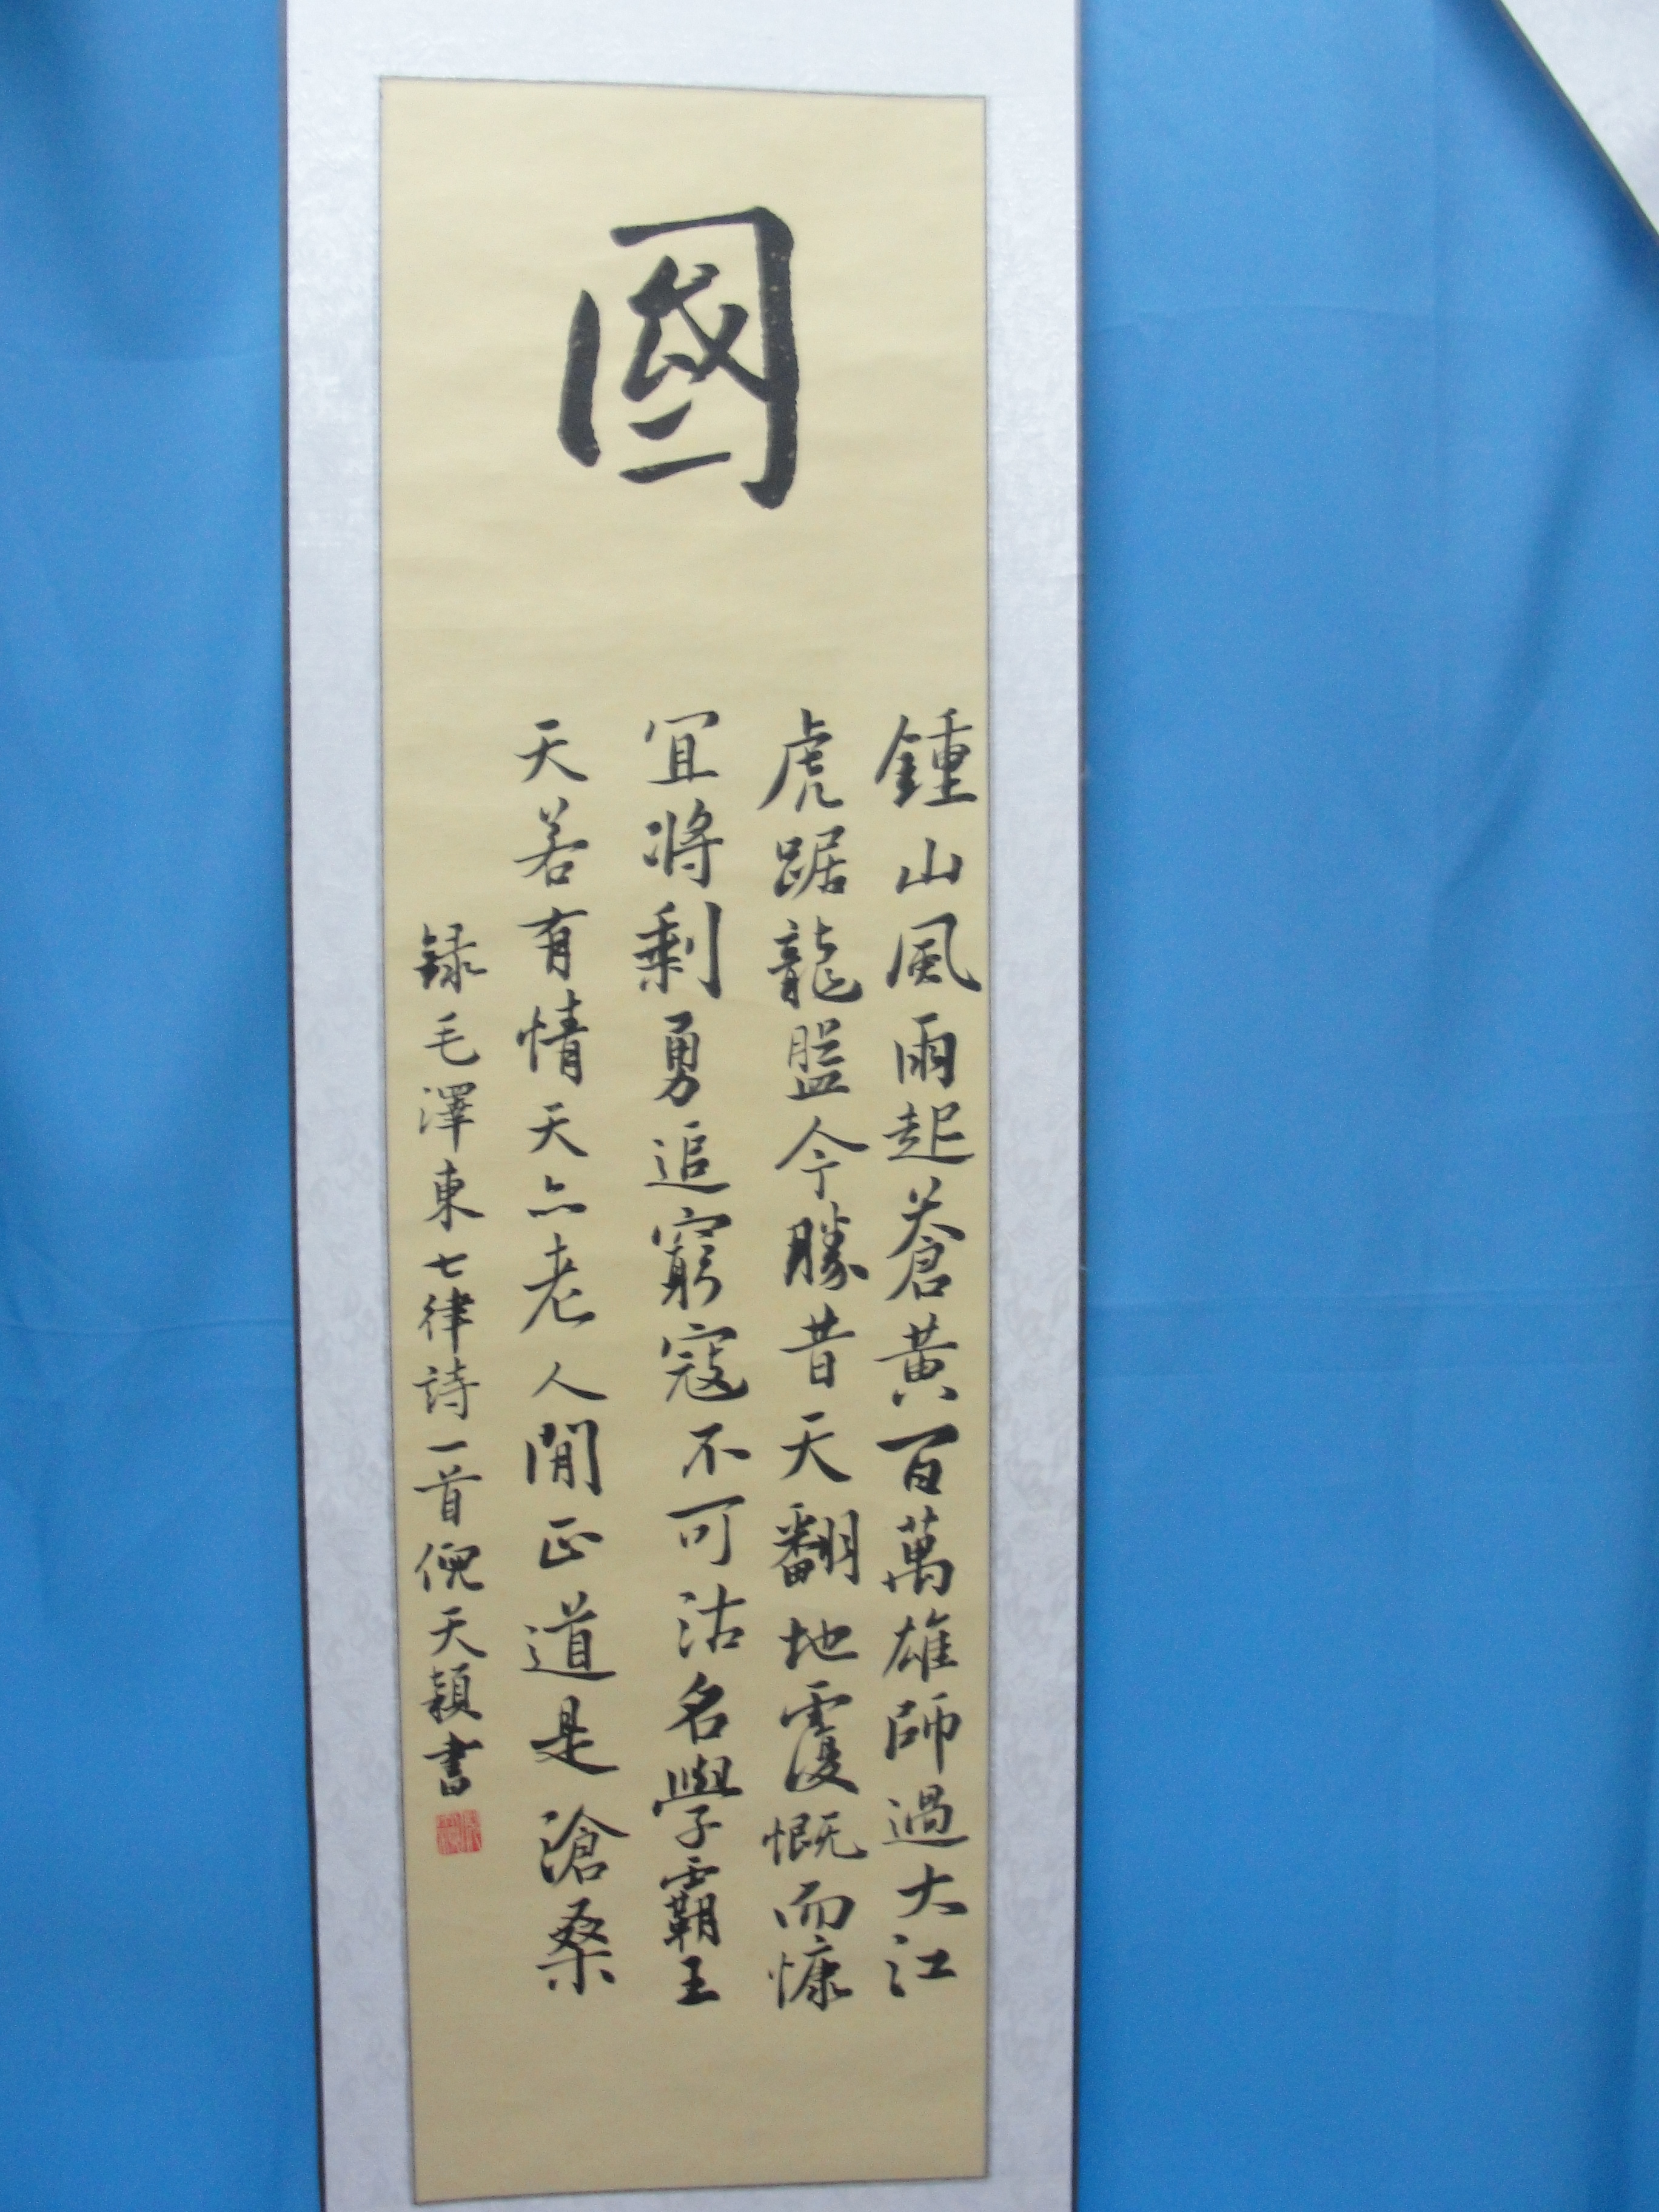 國
鍾山風雨起蒼黃百萬雄師過大江
虎踞龍盤今勝昔天翻地覆慨而慷
宜將剩勇追窮寇不可沽名學霸王
天若有情天亦老人間正道是滄桑
録毛澤東七律詩一首倪天穎書